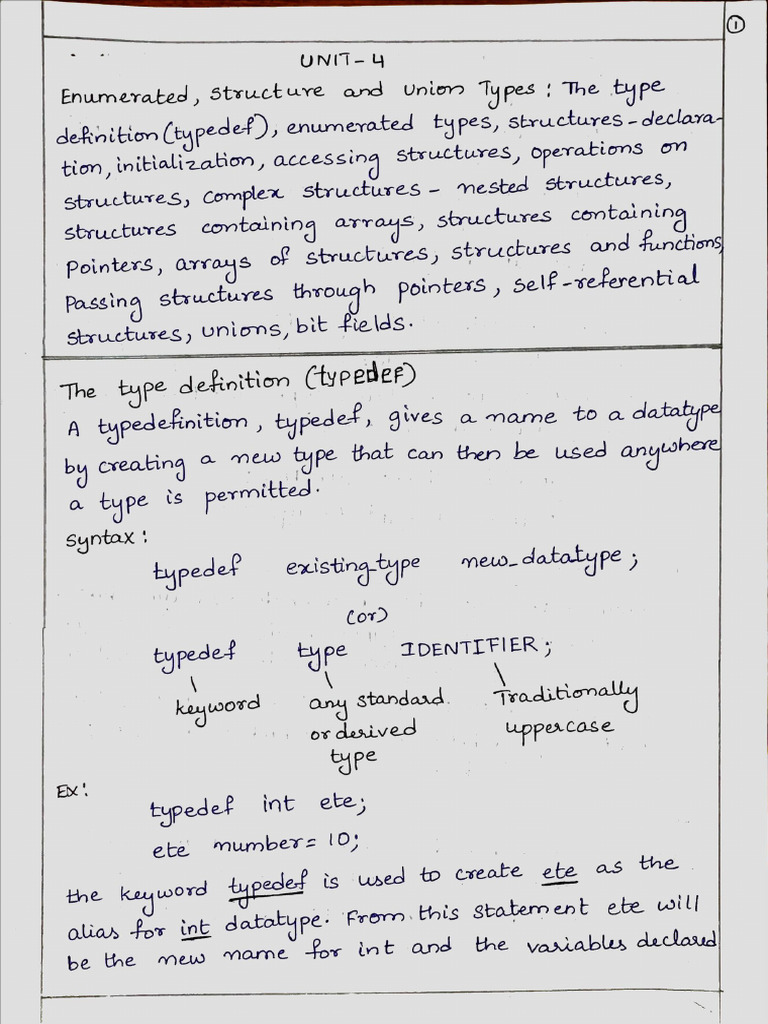 1
UNIT-4
Enumerated, structure and Union Types: The type
definition(typedef), enumerated types, structures-declara-
tion, initialization, accessing structures, operations on
structures, complex structures - nested structures,
structures containing arrays, structures containing
Pointers, arrays of structures, structures and functions,
Passing structures through pointers, self-referential
structures, unions, bit fields.
The type definition (typedef)
A typedefinition, typedef, gives a name to a datatype
by creating a new type that can then be used anywhere
a type is permitted.
Syntax:
typedef existing_type new_datatype;
(or)
typedef type IDENTIFIER;
keyword any standard Traditionally
or derived uppercase
type
Ex:
typedef int ete;
ete number = 10;
the keyword typedef is used to create ete as the
alias for int datatype. From this statement ete will
be the new name for int and the variables declared